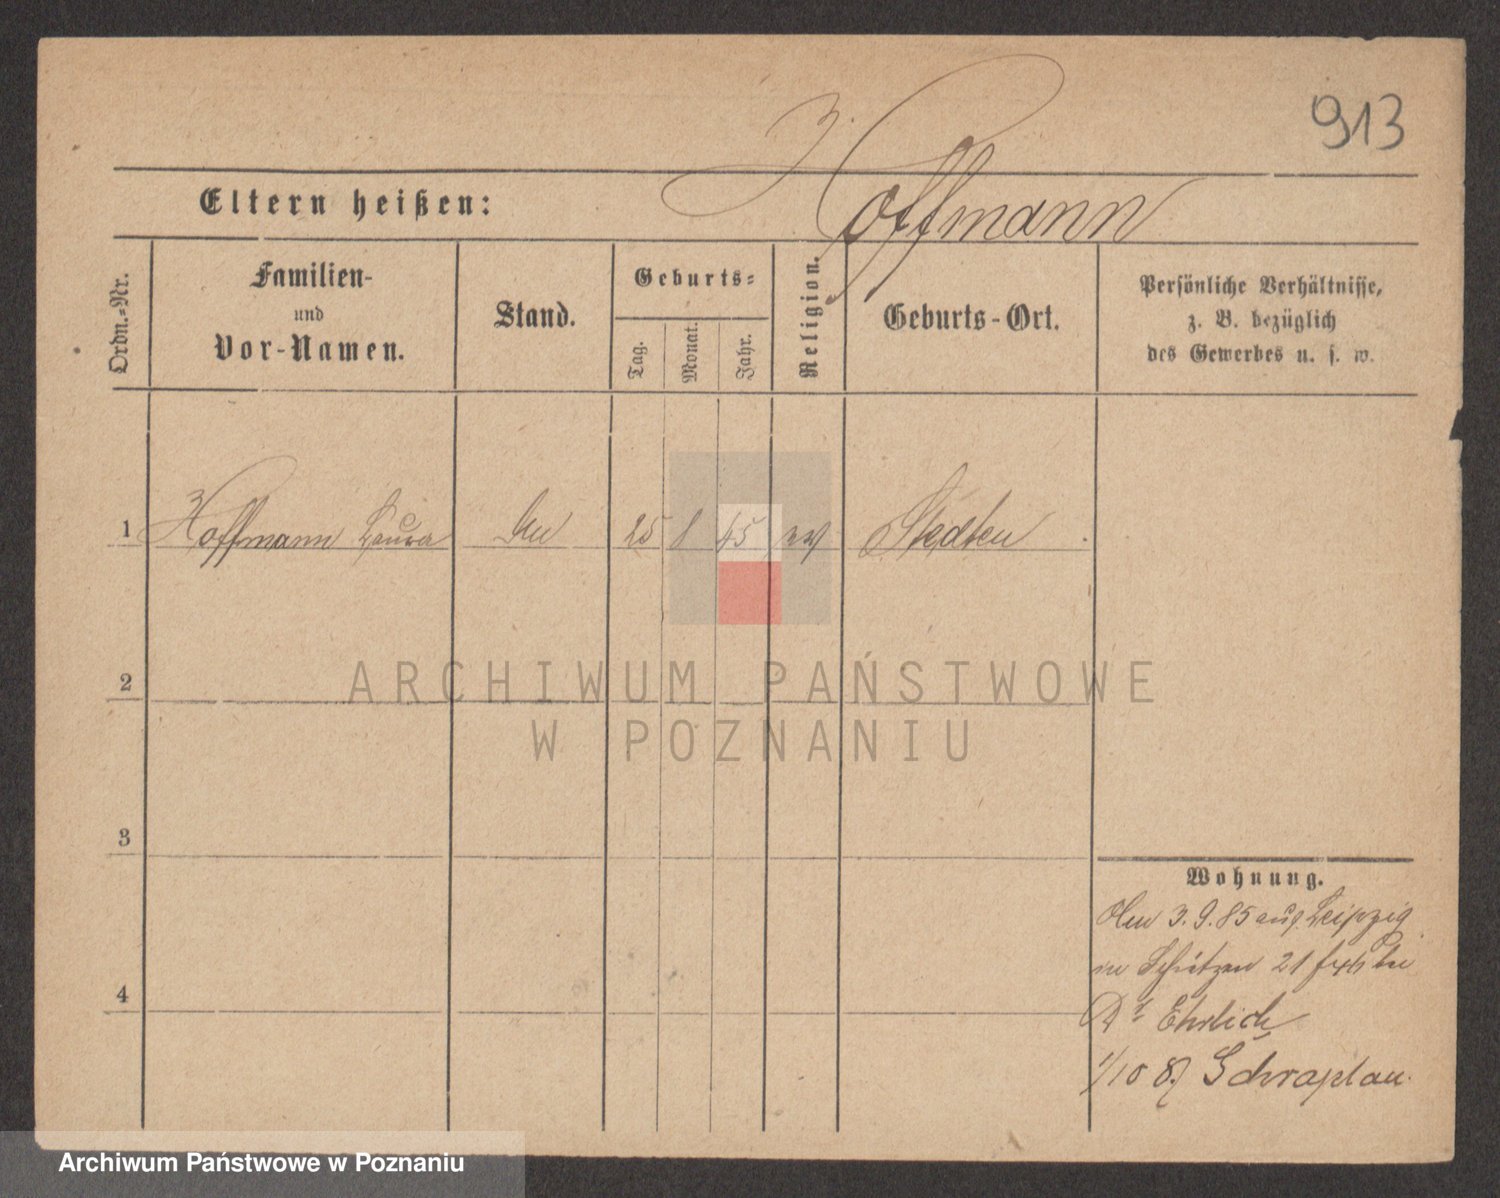 913
Eltern heißen: Hoffmann
Ordn.-Nr.
Familien-
und
Vor-Namen.
Stand.
Geburts-
Tag.
Monat.
Jahr.
Religion.
Geburts-Ort.
Persönliche Verhältnisse,
z. B. bezüglich
des Gewerbes u. s. w.
1 Hoffmann Laura 25 8 65 ev Stedten
2
ARCHIWUM PAŃSTWOWE
W POZNANIU
3
Wohnung.
3.9.85 aus Leipzig
Schützen 21
4
Dr Ehrlich
1/10 87 Schraplau.
Archiwum Państwowe w Poznaniu